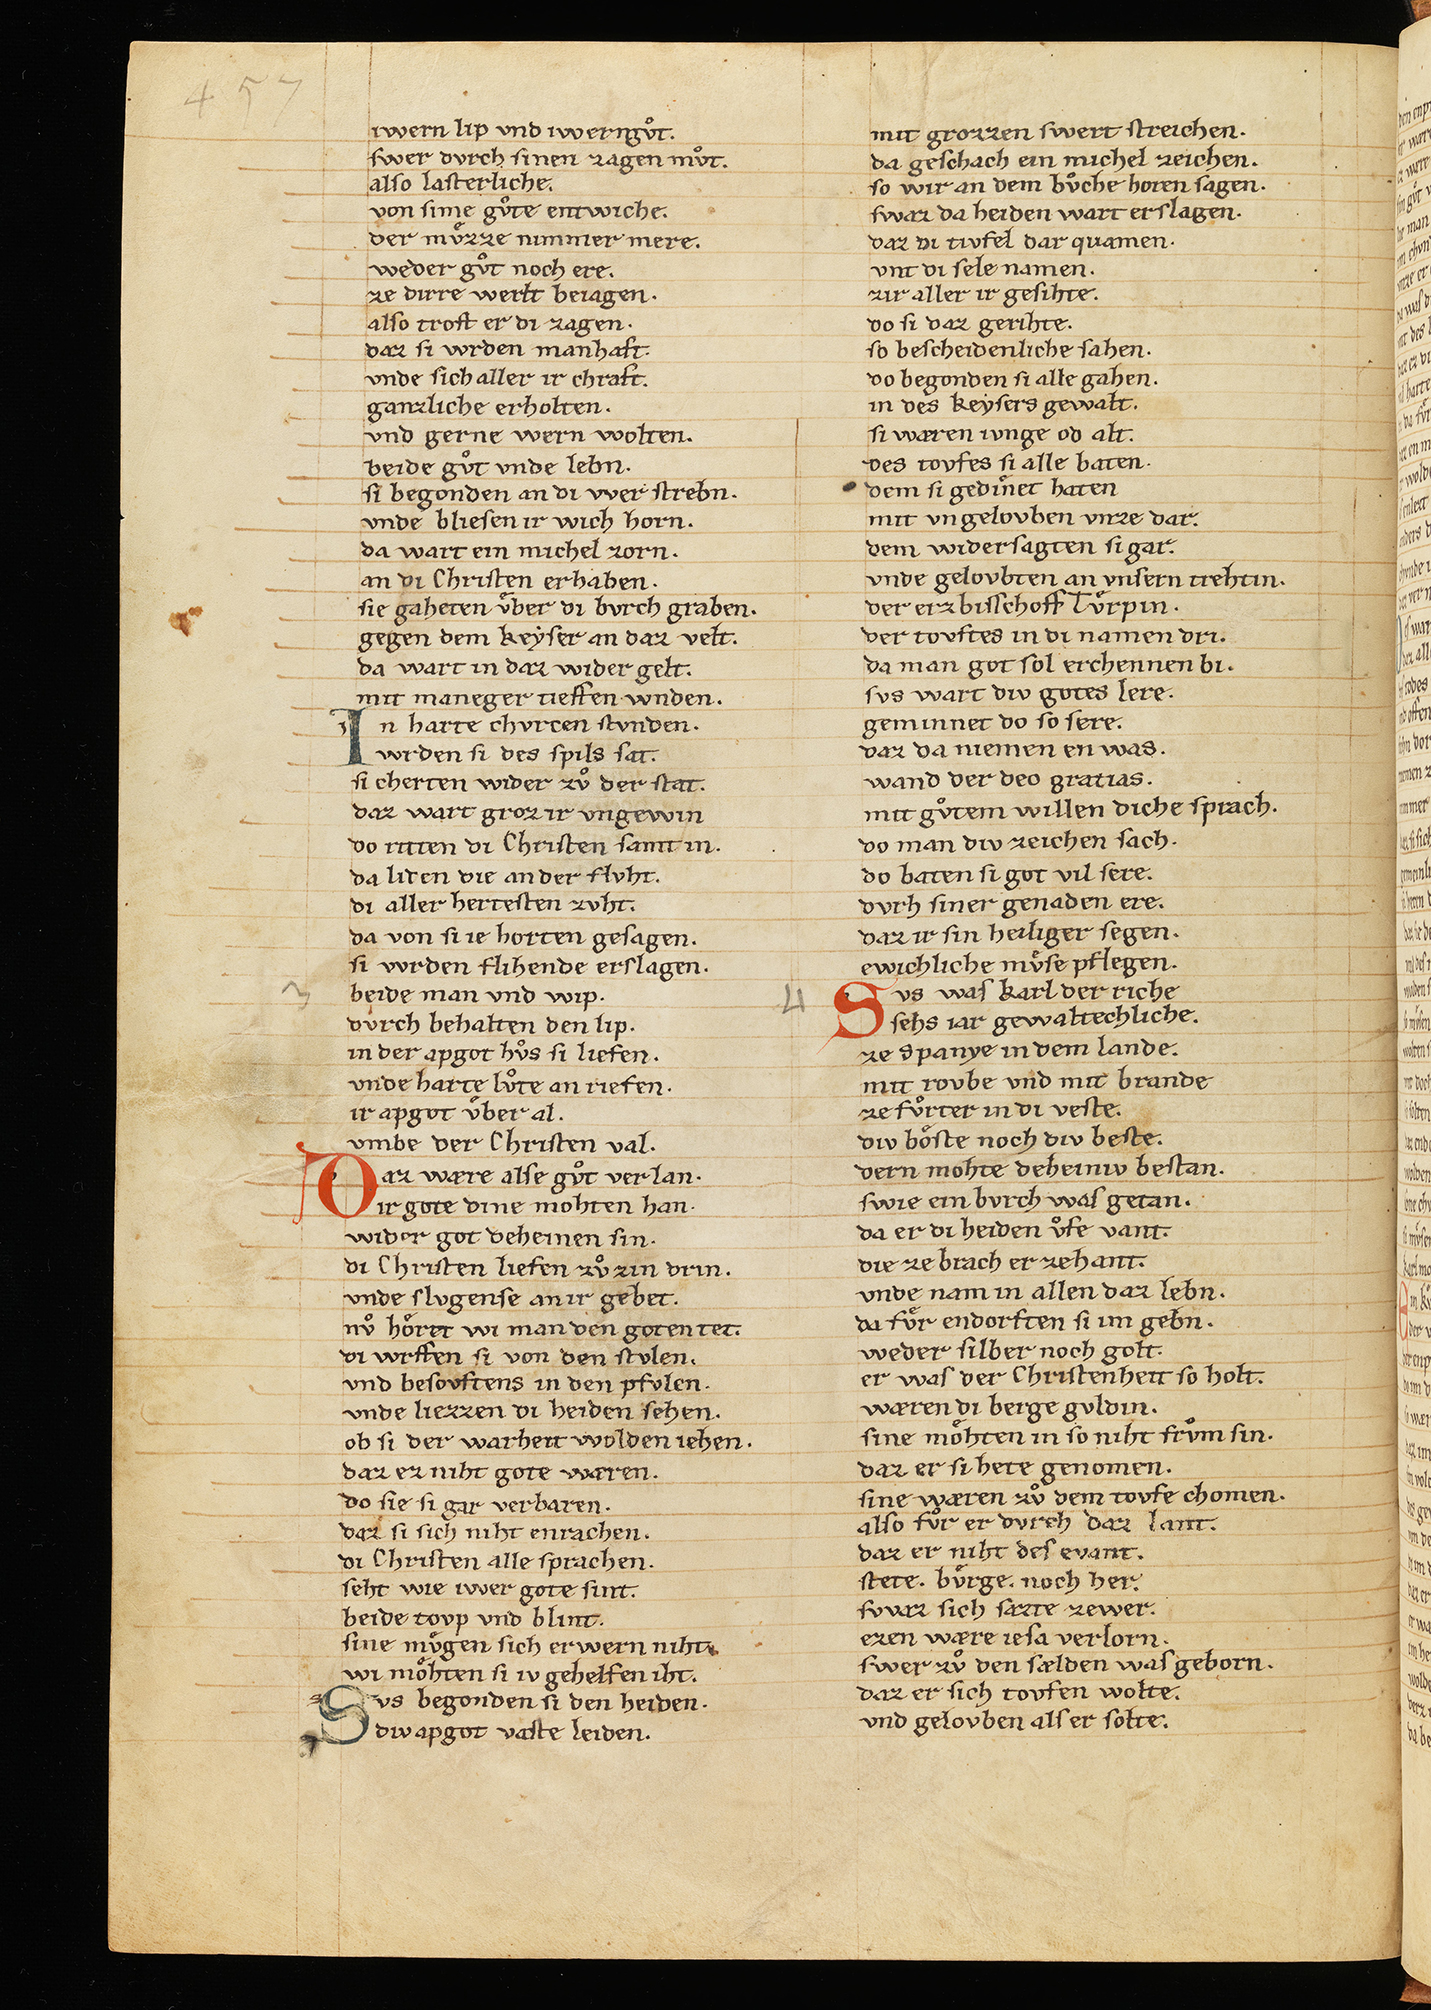 457
iwern lip vnd iwernguͦt.
swer dvrch sinen zagen muͦt.
also lasterliche.
von sime guͦte entwiche.
der muͤzze nimmer mere.
weder guͦt noch ere.
ze dirre werlt beiagen.
also trost er di zagen.
daz si wrden manhaft.
vnde sich aller ir chraft.
ganzliche erholten.
vnd gerne wern wolten.
beide guͦt vnde lebn.
si begonden an di wer strebn.
vnde bliesen ir wich horn.
da wart ein michel zorn.
an di Christen erhaben.
sie gaheten vͤber di bvrch graben.
gegen dem keyser an daz velt.
da wart in daz wider gelt.
mit maneger tieffen wnden.
In harte chvrcen stvnden.
wrden si des spils sat.
si cherten wider zuͦ der stat.
daz wart groz ir vngewin
do riten di Christen samt in.
da liten die an der flvht.
di aller hertesten zvht.
da von si ie horten gesagen.
si wrden flihende erslagen.
beide man vnd wip.
dvrch behalten den lip.
in der apgot hvͦs si liefen.
vnde harte lvͦte an riefen.
ir apgot vͤber al.
vmbe der Christen val.
Daz wære alse guͦt verlan.
ir gote dine mohten han.
wider got deheinen sin.
di Christen liefen zvͦ zin drin.
vnde slvgense an ir gebet.
nvͦ hoͤrt wi man den goten tet.
di wrffen si von den stvlen.
vnd besovftens in den pfvlen.
vnde liezzen di heiden sehen.
ob si der warheit wolden iehen.
daz ez niht gote wæren.
do sie si gar verbaren.
daz si sich niht enrachen.
di Christen alle sprachen.
seht wie iwer gote sint.
beide tovp vnd blint.
sine mvͤgen sich erwern niht.
wi moͤhten si iv gehelfen iht.
Svs begonden si den heiden.
div apgot vaste leiden.
mit grozzen swert streichen.
da geschach ein michel zeichen.
so wir an dem bvͦche horen sagen.
swaz da heiden wart erslagen.
daz di tivfel dar quamen.
vnt di sele namen.
zir aller ir gesihte.
do si daz gerihte.
so bescheidenliche sahen.
do begonden si alle gahen.
in des keysers gewalt.
si wæren ivnge od alt.
des tovfes si alle baten.
dem si gedinet haten
mit vngelovben vnze dar.
dem widersagten si gar.
vnde gelovbten an vnsern trehtin.
der erzbisschoff Tvͤrpin.
der tovftes in di namen dri.
da man got sol erchennen bi.
svs wart div gotes lere.
geminnet do so sere.
daz da niemen en was.
wand der deo gratias.
mit guͦtem willen diche sprach.
do man div zeichen sach.
do baten si got vil sere.
dvrh siner genaden ere.
daz ir sin heiliger segen.
ewichliche mvͤse pflegen.
Svs was karl der riche
sehs iar gewaltechliche.
ze Spanye in dem lande.
mit rovbe vnd mit brande
ze fvͦrter in di veste.
div boͤste noch div beste.
dern mohte deheiniv bestan.
swie ein bvrch was getan.
da er di heiden vͦfe vant.
die ze brach er zehant.
vnde nam in allen daz lebn.
da fvͤr endorften si im gebn.
weder silber noch golt.
er was der Christenheit so holt.
wæren di berge gvldin.
sine moͤhten in so niht frvͦm sin.
daz er si hete genomen.
sine wæren zvͦ dem tovfe chomen.
also fvͦr er dvrch daz lant.
daz er niht des evant.
stete. bvͤrge. noch her.
swaz sich sazte zewer.
ezen wære iesa verlorn.
swer zvͦ den sælden was geborn.
daz er sich tovfen wolte.
vnd gelovben als er solte.